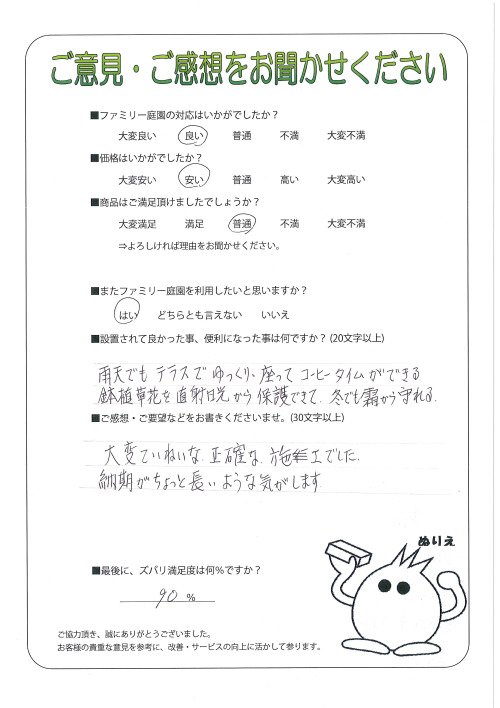 ご意見・ご感想をお聞かせください
■ファミリー庭園の対応はいかがでしたか？
大変良い 良い 普通 不満 大変不満
■価格はいかがでしたか？
大変安い 安い 普通 高い 大変高い
■商品はご満足頂けましたでしょうか？
大変満足 満足 普通 不満 大変不満
⇒よろしければ理由をお聞かせください。
■またファミリー庭園を利用したいと思いますか？
はい どちらとも言えない いいえ
■設置されて良かった事、便利になった事は何ですか？(20文字以上)
雨天でも テラスで ゆっくり、座って コーヒータイムができる
鉢植草花を直射日光から保護できて、冬でも霜から守れる。
■ご感想・ご要望などをお書きくださいませ。(30文字以上)
大変ていねいな、正確な、施工でした。
納期がちょっと長いような気がします
ぬりえ
■最後に、ズバリ満足度は何％ですか？
90 ％
ご協力頂き、誠にありがとうございました。
お客様の貴重な意見を参考に、改善・サービスの向上に活かして参ります。